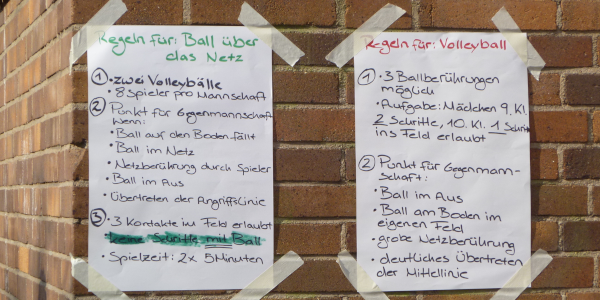 Regeln für: Ball über
das Netz
① • zwei Volleybälle
• 8 Spieler pro Mannschaft
② Punkt für Gegenmannschaft
wenn:
• Ball auf den Boden fällt
• Ball im Netz
• Netzberührung durch Spieler
• Ball im Aus
• Übertreten der Angriffslinie
③ • 3 Kontakte im Feld erlaubt
• keine Schritte mit Ball
• Spielzeit: 2x 5 Minuten
Regeln für: Volleyball
① • 3 Ballberührungen
möglich
• Aufgabe: Mädchen 9. Kl.
2 Schritte, 10. Kl. 1 Schritt
ins Feld erlaubt
② Punkt für Gegenmann-
schaft:
• Ball im Aus
• Ball am Boden im
eigenen Feld
• grobe Netzberührung
• deutliches Übertreten
der Mittellinie